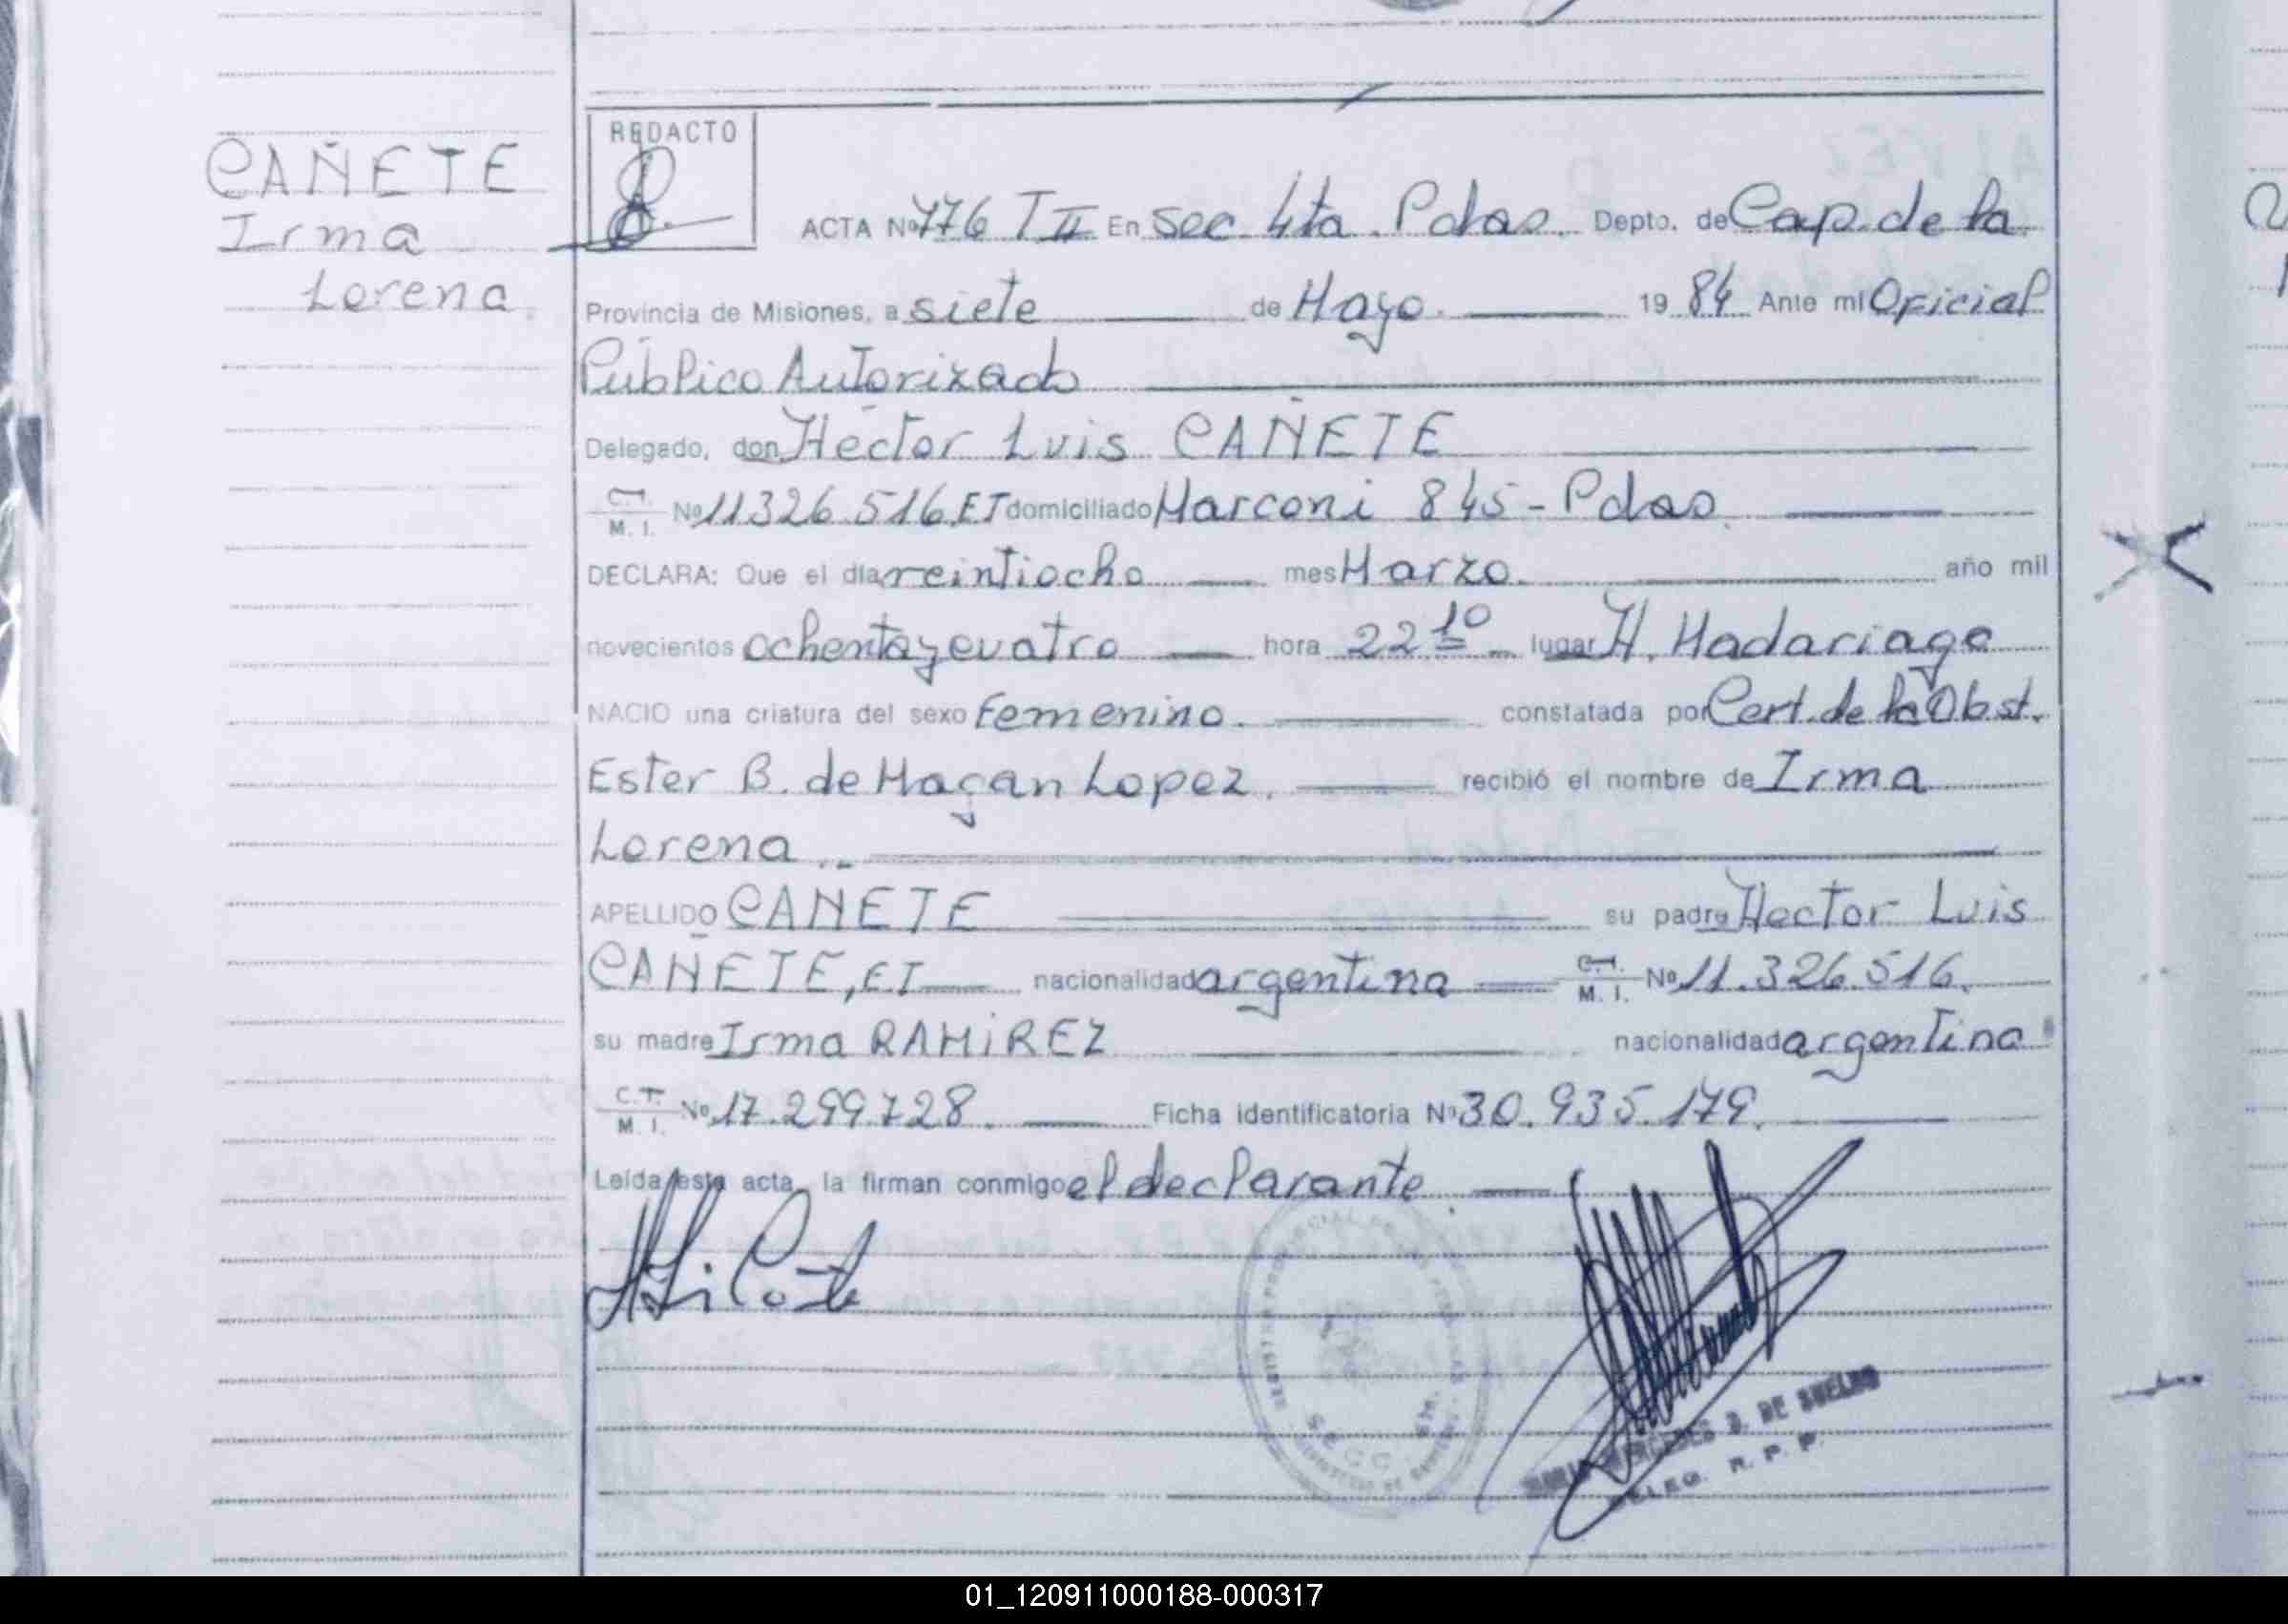 CAÑETE
Irma
Lorena
REDACTO
ACTA Nº 776 T II En Sec. 4ta. Pdas. Depto. de Cap. de la
Provincia de Misiones, a siete de Mayo. 19 84 Ante mi Oficial
Público Autorizado
Delegado, don Héctor Luis CAÑETE
C.I. M. I. Nº 11326.516, ET domiciliado Marconi 845 - Pdas.
DECLARA: Que el día veintiocho mes Marzo. año mil
novecientos ochenta y cuatro hora 22 10 lugar H. Madariaga
NACIO una criatura del sexo femenino. constatada por Cert. de la Obst.
Ester B. de López. recibió el nombre de Irma
Lorena ..
APELLIDO CAÑETE su padre Hector Luis
CAÑETE, ET nacionalidad argentina C.I. M. I. Nº 11.326.516.
su madre Irma RAMiREZ nacionalidad argentina
C.I. M. I. Nº 17.299.728. Ficha identificatoria Nº 30.935.179.
Leída esta acta, la firman conmigo el declarante
MERCEDES DE
DELEG. R. P. P.
01_120911000188-000317